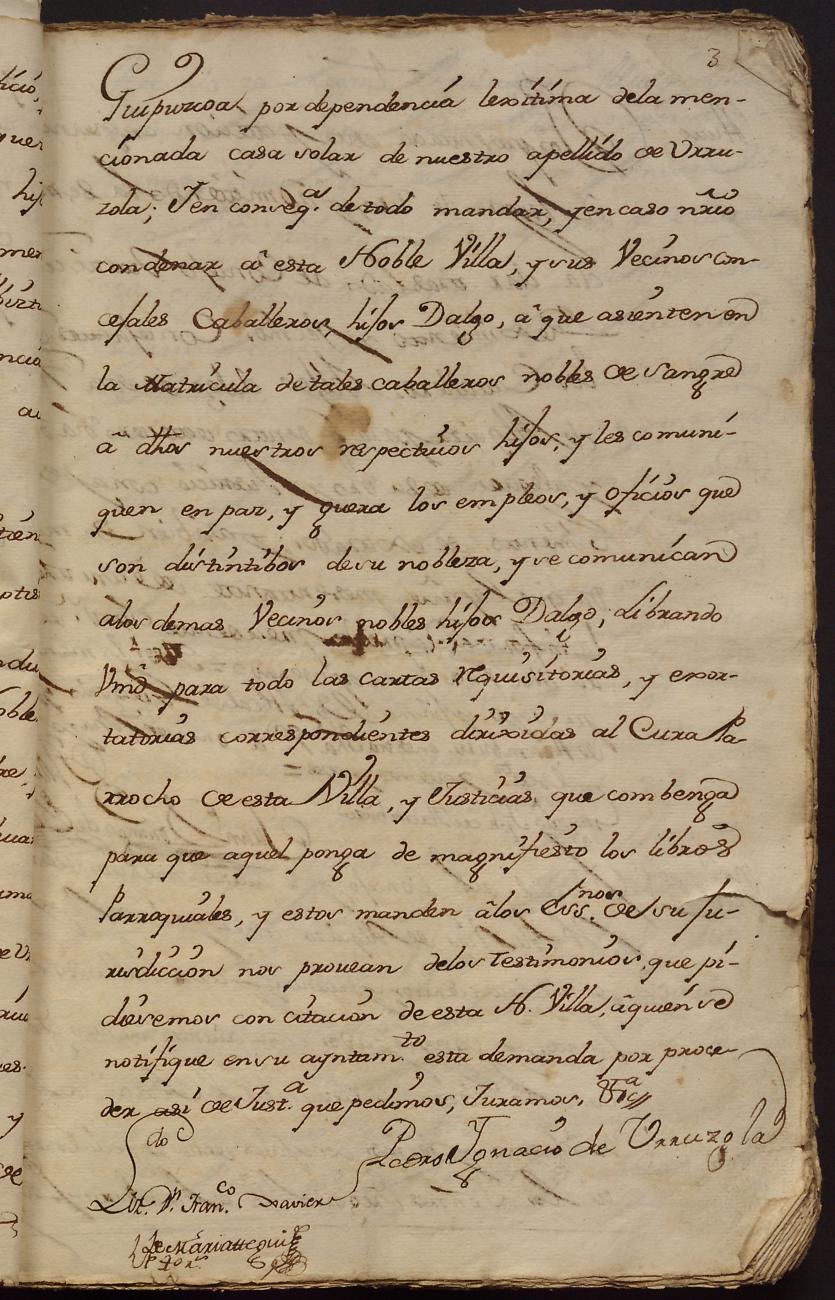 3
Guipuzcoa, por dependencia lexitima dela men-
cionada casa solar de nuestro apellido de Urru-
zola; Y en conseq.ª de todo mandar, y en caso nrio
condenar â esta Noble Villa, y sus Vecinos con-
cejales Caballeros, hijos Dalgo, â que asienten en
la Matricula de tales caballeros nobles de sangre
â dhos nuestros respectivos hijos, y les comuni-
quen en paz, y guera los empleos, y oficios que
son distintibos de su nobleza, y se comunican
alos demas Vecinos nobles hijos Dalgo; librando
Vmd para todo las cartas requisitorias, y exor-
tatorias correspondientes dirixidas al Cura Pa-
rrocho de esta Villa, y Justicias que combenga
para que aquel ponga de magnifiesto los libros
Parroquiales, y estos manden âlos Ess.nos de su Ju-
risdiccion nos provean delos Testimonios, que pi-
dieremos con citacion de esta N. Villa, âquien se
notifique en su ayntam.to esta demanda por proce-
der asi de Just.ª que pedimos, Juramos, &ª
Pedro Ygnacio de Urruzola
Liz.do Dn Fran.co Xavier
de Mariattegui